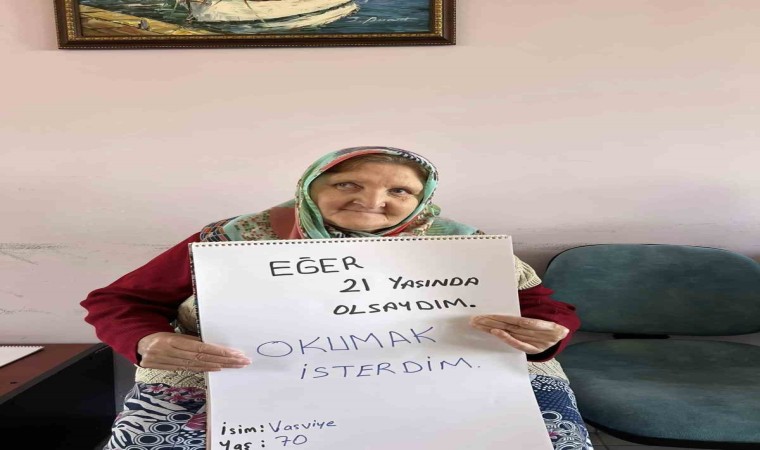 EĞER
21 YAŞINDA
OLSAYDIM.
OKUMAK
İSTERDİM.
İsim: Vasviye
Yaş : 70